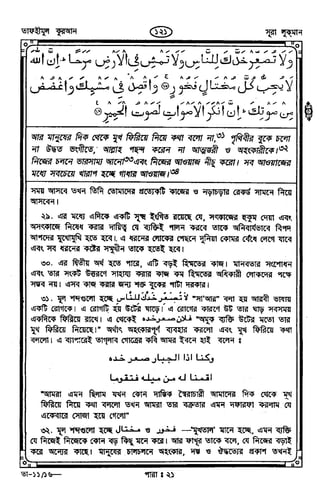 তাফহীমুল কুরআন
১২১
সূরা লুকমান
وَلَا تُصَعِّرْ خَدَّكَ لِلنَّاسِ وَلَا تَمْشِ فِي الْأَرْضِ مَرَحًا ۖ إِنَّ اللَّهَ
لَا يُحِبُّ كُلَّ مُخْتَالٍ فَخُورٍ ۝ وَاقْصِدْ فِي مَشْيِكَ وَاغْضُضْ
مِن صَوْتِكَ ۚ إِنَّ أَنكَرَ الْأَصْوَاتِ لَصَوْتُ الْحَمِيرِ ۝
আর মানুষের দিক থেকে মুখ ফিরিয়ে নিয়ে কথা বলো না,৩১ পৃথিবীর বুকে চলো
না উদ্ধত ভংগীতে, আল্লাহ পছন্দ করেন না আত্মম্ভরী ও অহংকারীকে।৩২
নিজের চলনে ভারসাম্য আনো৩৩ এবং নিজের আওয়াজ নীচু করো। সব আওয়াজের
মধ্যে সবচেয়ে খারাপ হচ্ছে গাধার আওয়াজ।৩৪
সময় আসবে তখন তিনি তোমাদের প্রত্যেকটি কাজের ও নড়াচড়ার রেকর্ড সামনে নিয়ে
আসবেন।
২৯. এর মধ্যে এদিকে একটি সূক্ষ্ম ইংগিত রয়েছে যে, সৎকাজের হুকুম দেয়া এবং
অসৎকাজে নিষেধ করার দায়িত্ব যে ব্যক্তিই পালন করবে তাকে অনিবার্যভাবে বিপদ
আপদের মুখোমুখি হতে হবে। এ ধরনের লোকের পেছনে দুনিয়া কোমর বেঁধে লেগে যাবে
এবং সব ধরনের কষ্টের সম্মুখীন তাকে হতেই হবে।
৩০. এর দ্বিতীয় অর্থ হতে পারে, এটি বড়ই হিম্মতের কাজ। মানবতার সংশোধন
এবং তার সংকট উত্তরণে সাহায্য করার কাজ কম হিম্মতের অধিকারী লোকদের পক্ষে
সম্ভব নয়। এসব কাজ করার জন্য শক্ত বুকের পাটা দরকার।
৩১. মূল শব্দগুলো হচ্ছে لَا تُصَعِّرْ خَدَّكَ لِلنَّاسِ "সা'আর" বলা হয় আরবী ভাষায়
একটি রোগকে। এ রোগটি হয় উটের ঘাড়ে। এ রোগের কারণে উট তার ঘাড় সবসময়
একদিকে ফিরিয়ে রাখে। এ থেকেই فلان صعر خده "অমুক ব্যক্তি উটের মতো তার
মুখ ফিরিয়ে নিয়েছে।" অর্থাৎ অহংকারপূর্ণ ব্যবহার করলো এবং মুখ ফিরিয়ে কথা
বললো। এ ব্যাপারেই তাগ্‌লাব গোত্রের কবি আমর ইবনে হাই বলেন :
وكنا اذا الجبار صعر خده
اقمنا له من ميله فتقوما
"আমরা এমন ছিলাম যখন কোন দাম্ভিক স্বৈরাচারী আমাদের দিক থেকে মুখ
ফিরিয়ে নিয়ে কথা বললো তখন আমরা তার বক্রতার এমন দফারফা করলাম যে
একেবারে সোজা হয়ে গেলো"
৩২. মূল শব্দগুলো হচ্ছে مختال ও فخور "মুখতাল" মানে হচ্ছে, এমন ব্যক্তি
যে নিজেই নিজেকে কোন বড় কিছু মনে করে। আর ফাখূর তাকে বলে, যে নিজের বড়াই
করে অন্যের কাছে। মানুষের চালচলনে অহংকার, দম্ভ ও ঔদ্ধত্যের প্রকাশ তখনই
তা-১১/১৬—
পারা : ২১